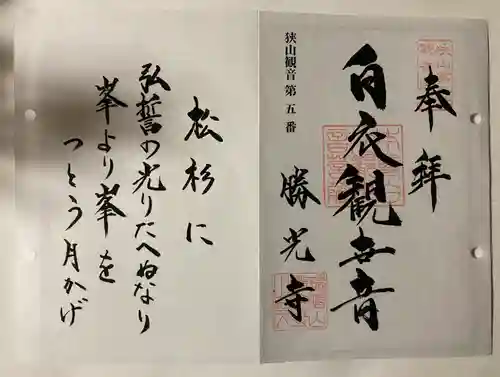 奉拝
狭山観音第五番
白衣観世音
勝光寺
松杉に
弘誓の光りたへぬなり
峯より峯を
つとう月かげ